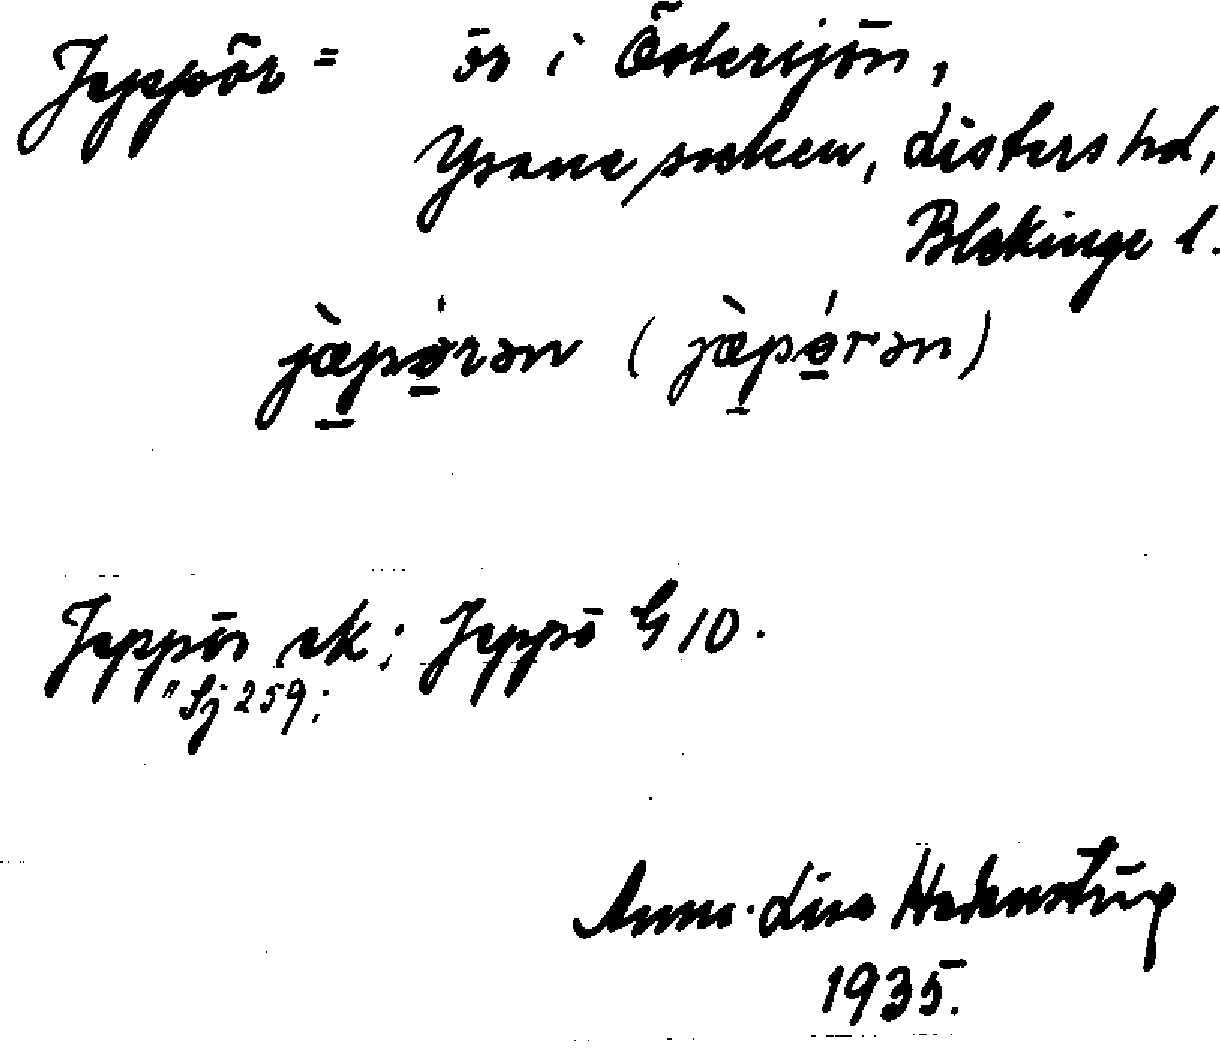 Jeppör = ör i Östersjön,
Ysane socken, Listers hd,
Blekinge l.
jæ̀pǿrən (jæ̀pǿrən)
Jeppör ek; Jeppö G 10.
" Sj 259;
Anna-Lisa
1935.